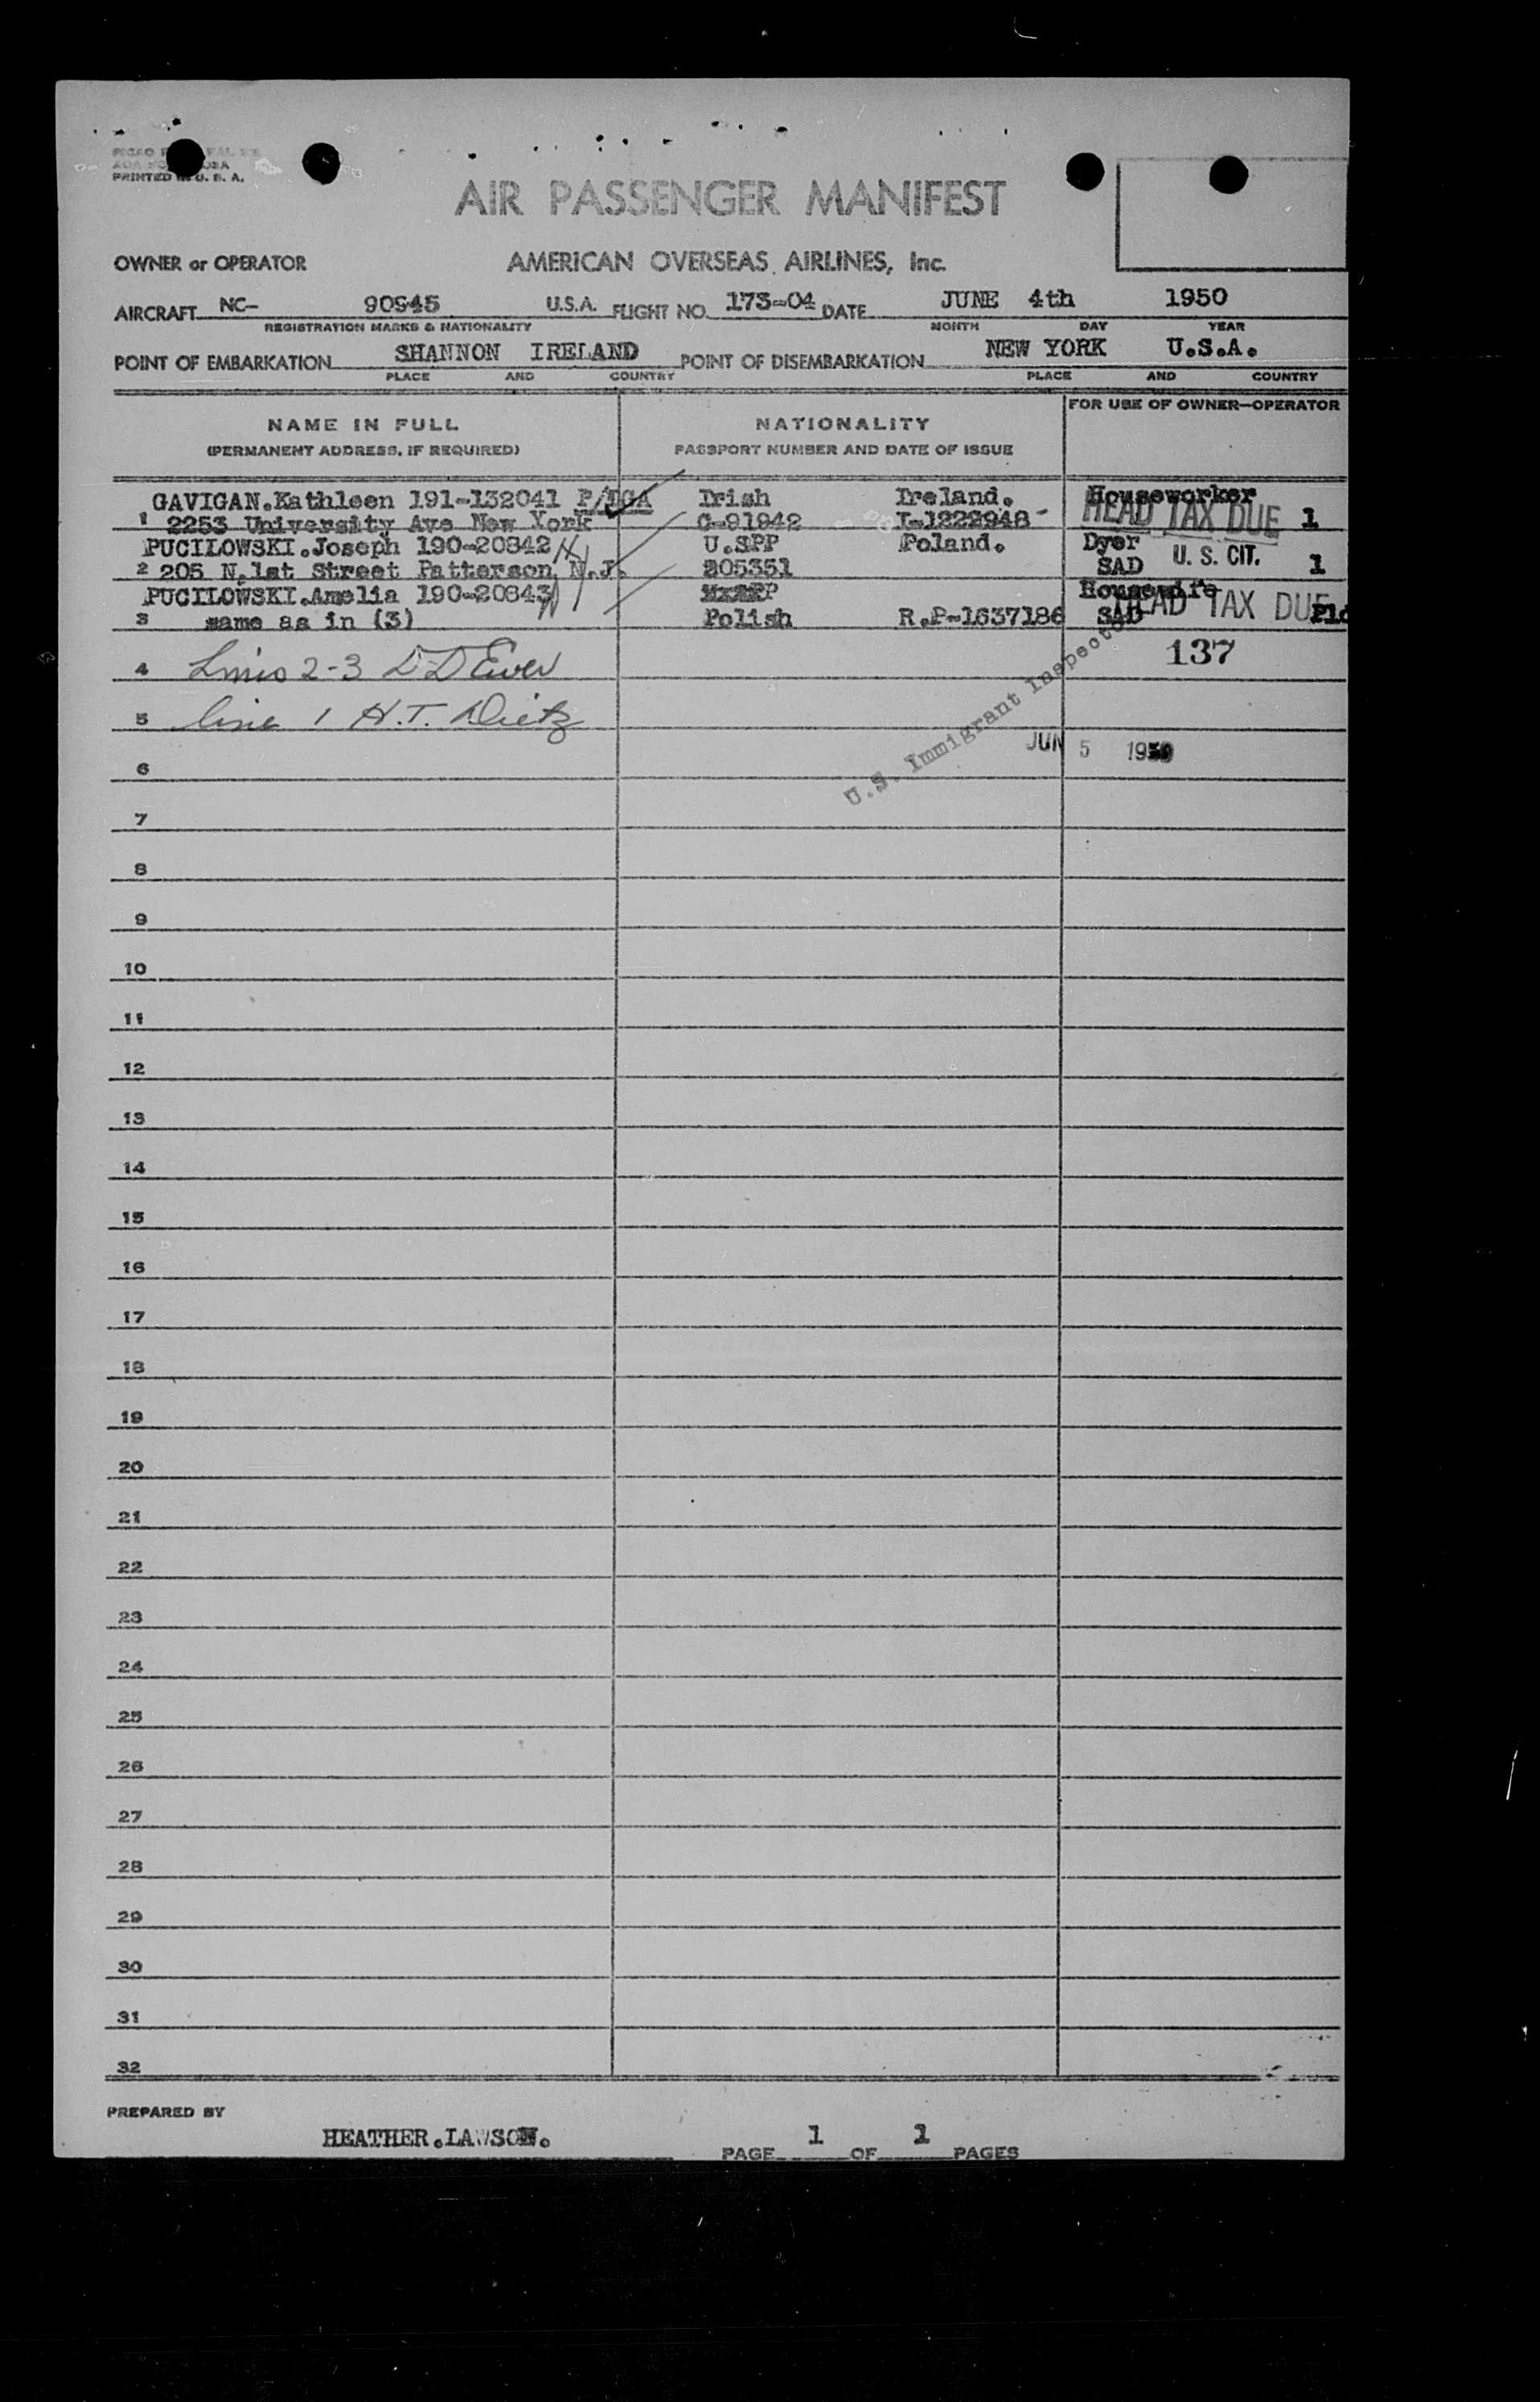 PRINTED IN U. S. A.
AIR PASSENGER MANIFEST
OWNER or OPERATOR AMERICAN OVERSEAS AIRLINES, Inc.
AIRCRAFT NC- 90945 U.S.A. FLIGHT NO. 173-04 DATE JUNE 4th 1950
REGISTRATION MARKS & NATIONALITY MONTH DAY YEAR
POINT OF EMBARKATION SHANNON IRELAND POINT OF DISEMBARKATION NEW YORK U.S.A.
PLACE AND COUNTRY PLACE AND COUNTRY
NAME IN FULL NATIONALITY FOR USE OF OWNER—OPERATOR
(PERMANENT ADDRESS, IF REQUIRED) PASSPORT NUMBER AND DATE OF ISSUE
GAVIGAN.Kathleen 191-132041 Irish Ireland. Houseworker
1 2253 University Ave New York C-91942 I-1222948 HEAD TAX DUE 1
PUCILOWSKI.Joseph 190-20842 U.SPP Poland. Dyer
2 205 N.1st Street Patterson, N.J. 205351 SAD U. S. CIT. 1
PUCILOWSKI.Amelia 190-20843 Housewife
3 same as in (3) Polish R.P-1637186 SAD HEAD TAX DUE
4 Lines 2-3 137
5 line 1 H.T. Dietz
U.S. Immigrant Inspector
JUN 5 1950
6
7
8
9
10
11
12
13
14
15
16
17
18
19
20
21
22
23
24
25
26
27
28
29
30
31
32
PREPARED BY
HEATHER.LAWSON.
PAGE 1 OF 1 PAGES